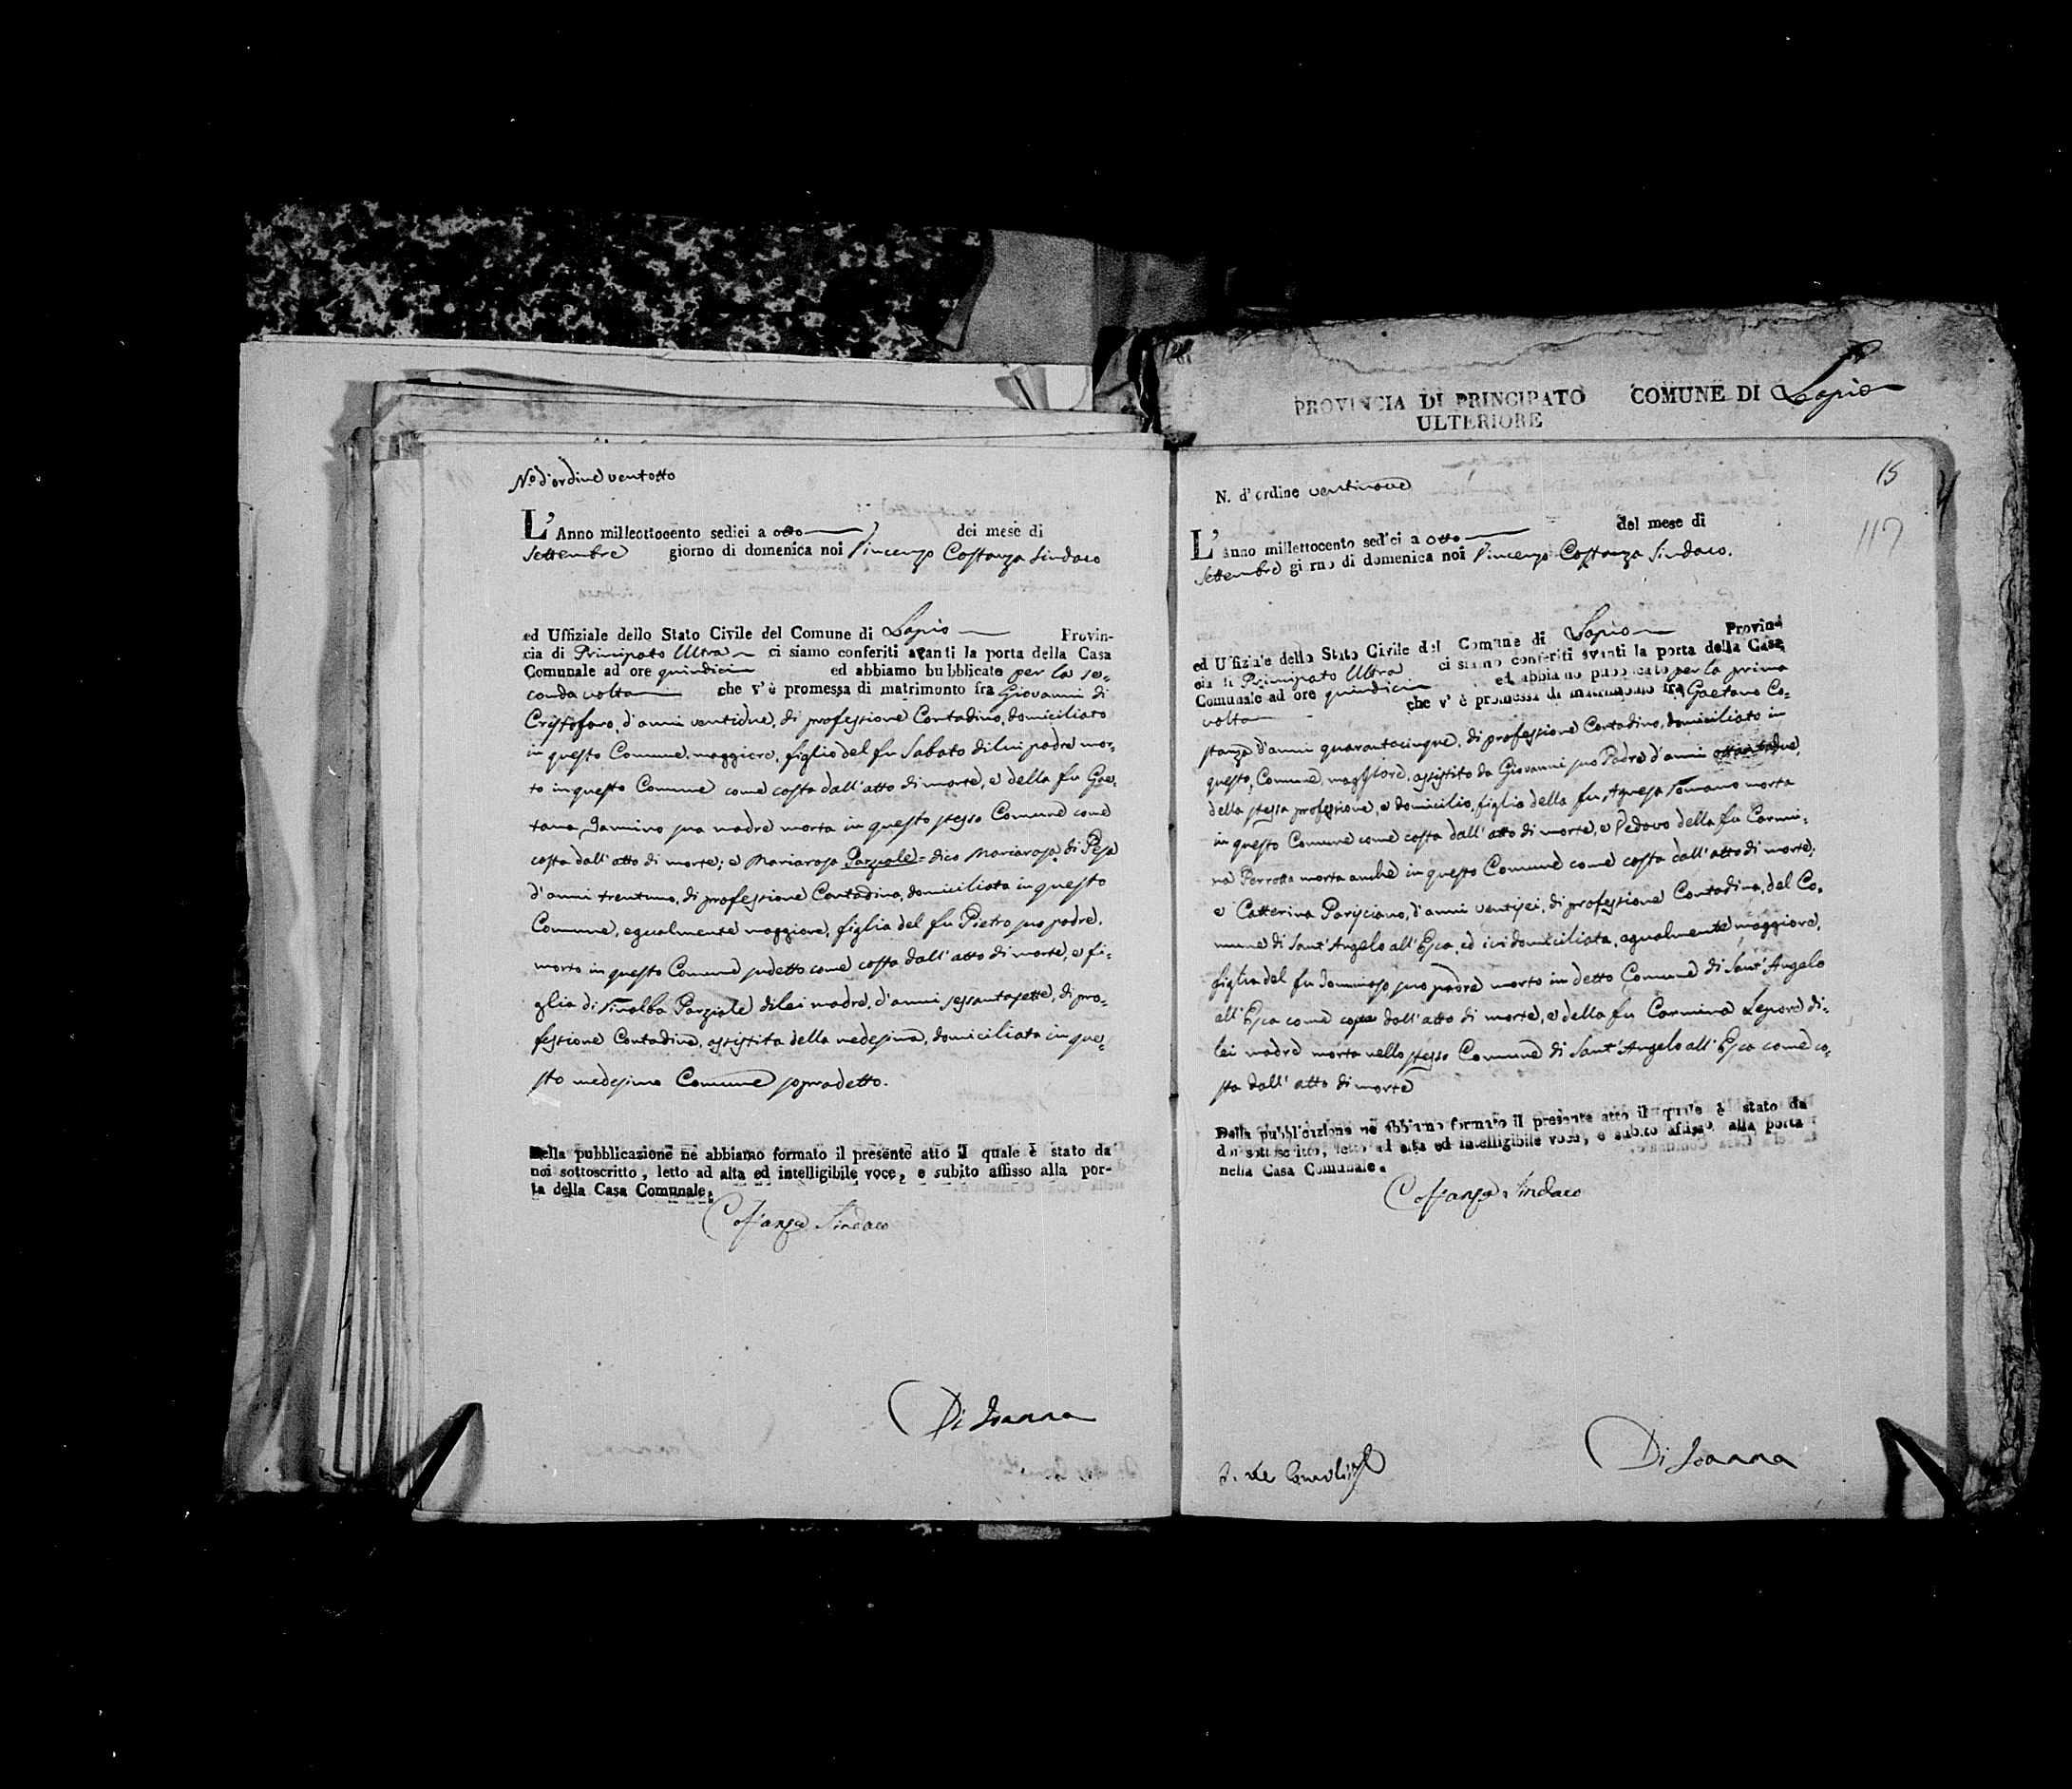 N.º d'ordine ventotto
L'Anno millecttocento sedici a otto dei mese di
Settembre giorno di domenica noi Vincenzo Costanza Sindaco
ed Uffiziale dello Stato Civile del Comune di Lapio Provin-
cia di Principato Ultra ci siamo conferiti avanti la porta della Casa
Comunale ad ore quindici ed abbiamo bubblicato per la se-
conda volta che v'è promessa di matrimonto fra Giovanni di
Cristofaro, d'anni ventidue, di professione Contadino, domiciliato
in questo Comune, maggiore, figlio del fu Sabato di lui padre mor-
to in questo Comune come costa dall'atto di morte, e della fu Gae-
tana Iannino sua madre morta in questo stesso Comune come
costa dall'atto di morte; e Mariarosa Parziale = dico Mariarosa di Pesa
d'anni trentuno, di professione Contadina, domiciliata in questo
Comune, egualmente maggiore, figlia del fu Pietro suo padre,
morto in questo Comune sudetto come costa dall'atto di morte, e fi-
glia di Sinalba Parziale di lei madre, d'anni sessantasette, di pro-
fessione Contadina, assistita dalla medesima, domiciliata in que-
sto medesimo Comune sopradetto.
Della pubblicazione ne abbiamo formato il presente atto il quale è stato da
noi sottoscritto, letto ad alta ed intelligibile voce, e subito affisso alla por-
ta della Casa Comunale.
Costanza Sindaco
Di Ioanna
PROVINCIA DI PRINCIPATO COMUNE DI Lapio
ULTERIORE
15
117
N. d'ordine ventinove
L'Anno millettocento sedici a otto del mese di
Settembre giorno di domenica noi Vincenzo Costanza Sindaco.
ed Uffiziale dello Stato Civile del Comune di Lapio Provin-
cia di Principato Ultra ci siamo conferiti avanti la porta della Casa
Comunale ad ore quindici ed abbiamo pubblicato per la prima
volta che v' è promessa di matrimonio fra Gaetano Co-
stanza d'anni quarantacinque, di professione Contadino, domiciliato in
questo Comune, maggiore, assistito da Giovanni suo Padre d'anni ottantadue,
della stessa professione, e domicilio, figlio della fu Agnesa Romano morta
in questo Comune come costa dall'atto di morte, e Vedovo della fu Carmi-
na Perrotta morta anche in questo Comune come costa dall'atto di morte;
e Catterina Parisciano, d'anni ventisei, di professione Contadina, del Co-
mune di Sant'Angelo all'Esca, ed ivi domiciliata, egualmente maggiore,
figlia del fu Tommaso suo padre morto in detto Comune di Sant'Angelo
all'Esca come costa dall'atto di morte, e della fu Carmina Lepore di
lei madre morta nello stesso Comune di Sant'Angelo all'Esca come co-
sta dall'atto di morte
Della pubblicazione ne abbiamo formato il presente atto il quale è stato da
doi sottoscritto, letto ad alta ed intelligibile voce, e subito affisso alla porta
nella Casa Comunale.
Costanza Sindaco
Di Ioanna